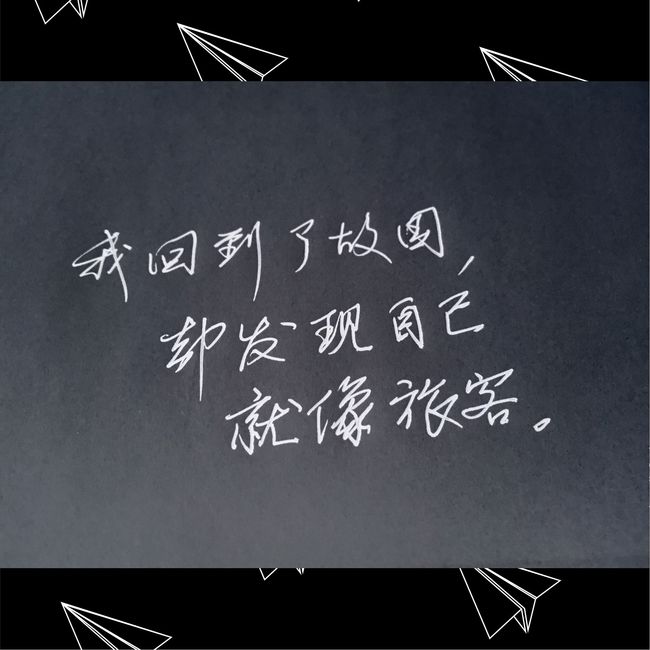 我回到了故园，
却发现自己
就像旅客。